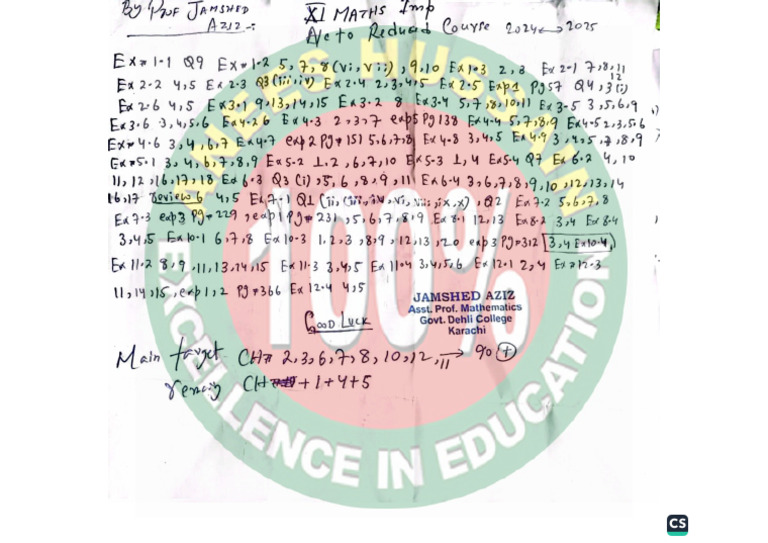 By Prof Jamshed
Aziz:-
XI Maths Imp
A/c to Reduced Course 2024 ↔ 2025
Ex # 1.1 Q9 Ex # 1.2 5, 7, 8 (vi, vii), 9, 10 Ex 1.3 2, 3 Ex 2.1 7, 8, 11
12
Ex 2.2 4, 5 Ex 2.3 Q3 (iii, iv) Ex 2.4 2, 3, 4, 5 Ex 2.5 Exp 1 Pg 57 Q4, 3(i)
Ex 2.6 4, 5 Ex 3.1 9, 13, 14, 15 Ex 3.2 8 Ex 3.4 5, 7, 8, 10, 11 Ex 3.5 3, 5, 6, 9
Ex 3.6 3, 4, 5, 6 Ex 4.2 6 Ex 4.3 2, 3, 7 exp 5 Pg 138 Ex 4.4 5, 7, 8, 9 Ex 4.5 2, 3, 5, 6
Ex # 4.6 3, 4, 6, 7 Ex 4.7 exp 2 Pg # 151 5, 6, 7, 8 Ex 4.8 3, 4, 5 Ex 4.9 3, 4, 5, 7, 8, 9
Ex # 5.1 3, 4, 6, 7, 8, 9 Ex 5.2 1, 2, 6, 7, 10 Ex 5.3 1, 4 Ex 5.4 Q7 Ex 6.2 4, 10
11, 12, 16, 17, 18 Ex 6.3 Q3 (i), 5, 6, 8, 9, 11 Ex 6.4 3, 6, 7, 8, 9, 10, 12, 13, 14
16, 17 Review 6 4, 5 Ex 7.1 Q1 (ii, iii, iv, vi, vii, ix, x), Q2 Ex 7.2 5, 6, 7, 8
Ex 7.3 exp 3 Pg # 229, exp 1 Pg # 231, 5, 6, 7, 8, 9 Ex 8.1 12, 13 Ex 8.2 3, 4 Ex 8.4
3, 4, 5 Ex 10.1 6, 7, 8 Ex 10.3 1, 2, 3, 8, 9, 12, 13, 20 exp 3 Pg # 312 3, 4 Ex 10.4,
Ex 11.2 8, 9, 11, 13, 14, 15 Ex 11.3 3, 4, 5 Ex 11.4 3, 4, 5, 6 Ex 12.1 2, 4 Ex # 12.3
11, 14, 15, exp 1, 2 Pg # 366 Ex 12.4 4, 5
JAMSHED AZIZ
Asst. Prof. Mathematics
Govt. Dehli College
Karachi
Good Luck
Main target CH # 2, 3, 6, 7, 8, 10, 12, 11 → 90 +
CH + 1 + 4 + 5
ANEES HUSSAIN
100%
EXCELLENCE IN EDUCATION
CS